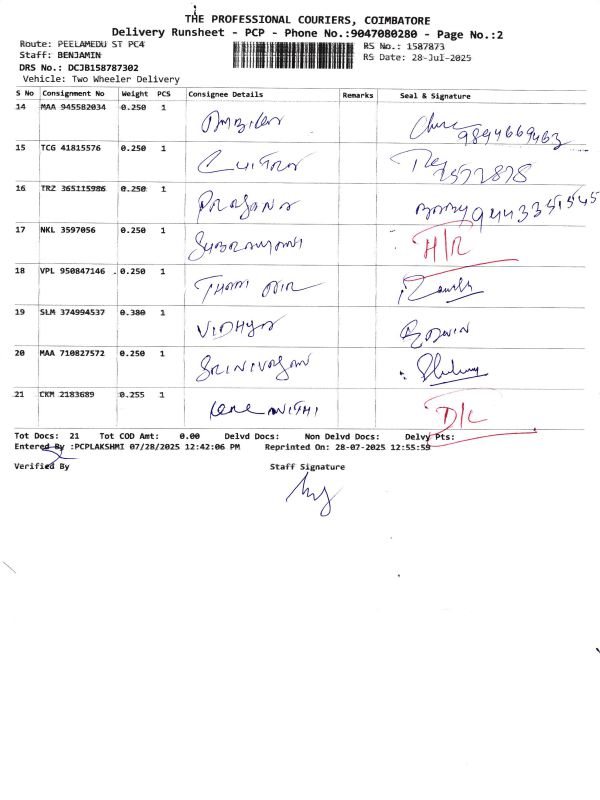 THE PROFESSIONAL COURIERS, COIMBATORE
Delivery Runsheet - PCP - Phone No.:9047080280 - Page No.:2
Route: PEELAMEDU ST PC4 RS No.: 1587873
Staff: BENJAMIN RS Date: 28-Jul-2025
DRS No.: DCJB158787302
Vehicle: Two Wheeler Delivery
S No Consignment No Weight PCS Consignee Details Remarks Seal & Signature
14 MAA 945582034 0.250 1
9894669463
15 TCG 41815576 0.250 1 CHITRA
16 TRZ 365115986 0.250 1
17 NKL 3597056 0.250 1 H/R
18 VPL 950847146 0.250 1
19 SLM 374994537 0.380 1 VIDHYA
20 MAA 710827572 0.250 1 SRINIVASAN
21 CKM 2183689 0.255 1 D/L
Tot Docs: 21 Tot COD Amt: 0.00 Delvd Docs: Non Delvd Docs: Delvy Pts:
Entered By :PCPLAKSHMI 07/28/2025 12:42:06 PM Reprinted On: 28-07-2025 12:55:59
Verified By Staff Signature